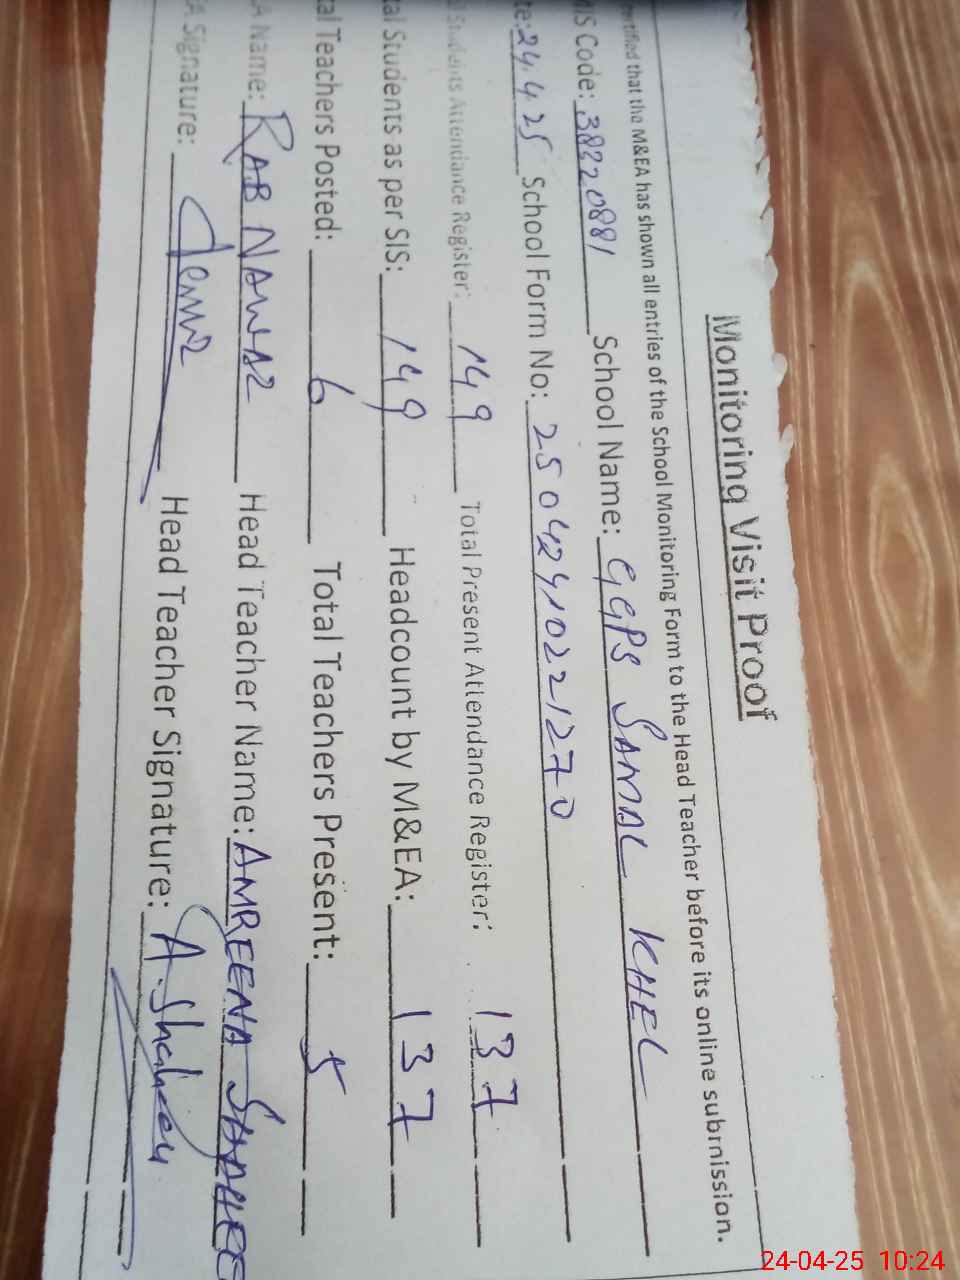 Monitoring Visit Proof
ertified that the M&EA has shown all entries of the School Monitoring Form to the Head Teacher before its online submission.
IS Code: 38220881 School Name: GGPS SAMAL KHEL
te: 24.4.25 School Form No: 25042410221270
l Students Attendance Register: 149 Total Present Attendance Register: 137
al Students as per SIS: 149 Headcount by M&EA: 137
al Teachers Posted: 6 Total Teachers Present: 5
A Name: RAB NAWAZ Head Teacher Name: AMREENA SHAHEE
A Signature: Head Teacher Signature: A. Shaheen
24-04-25 10:24